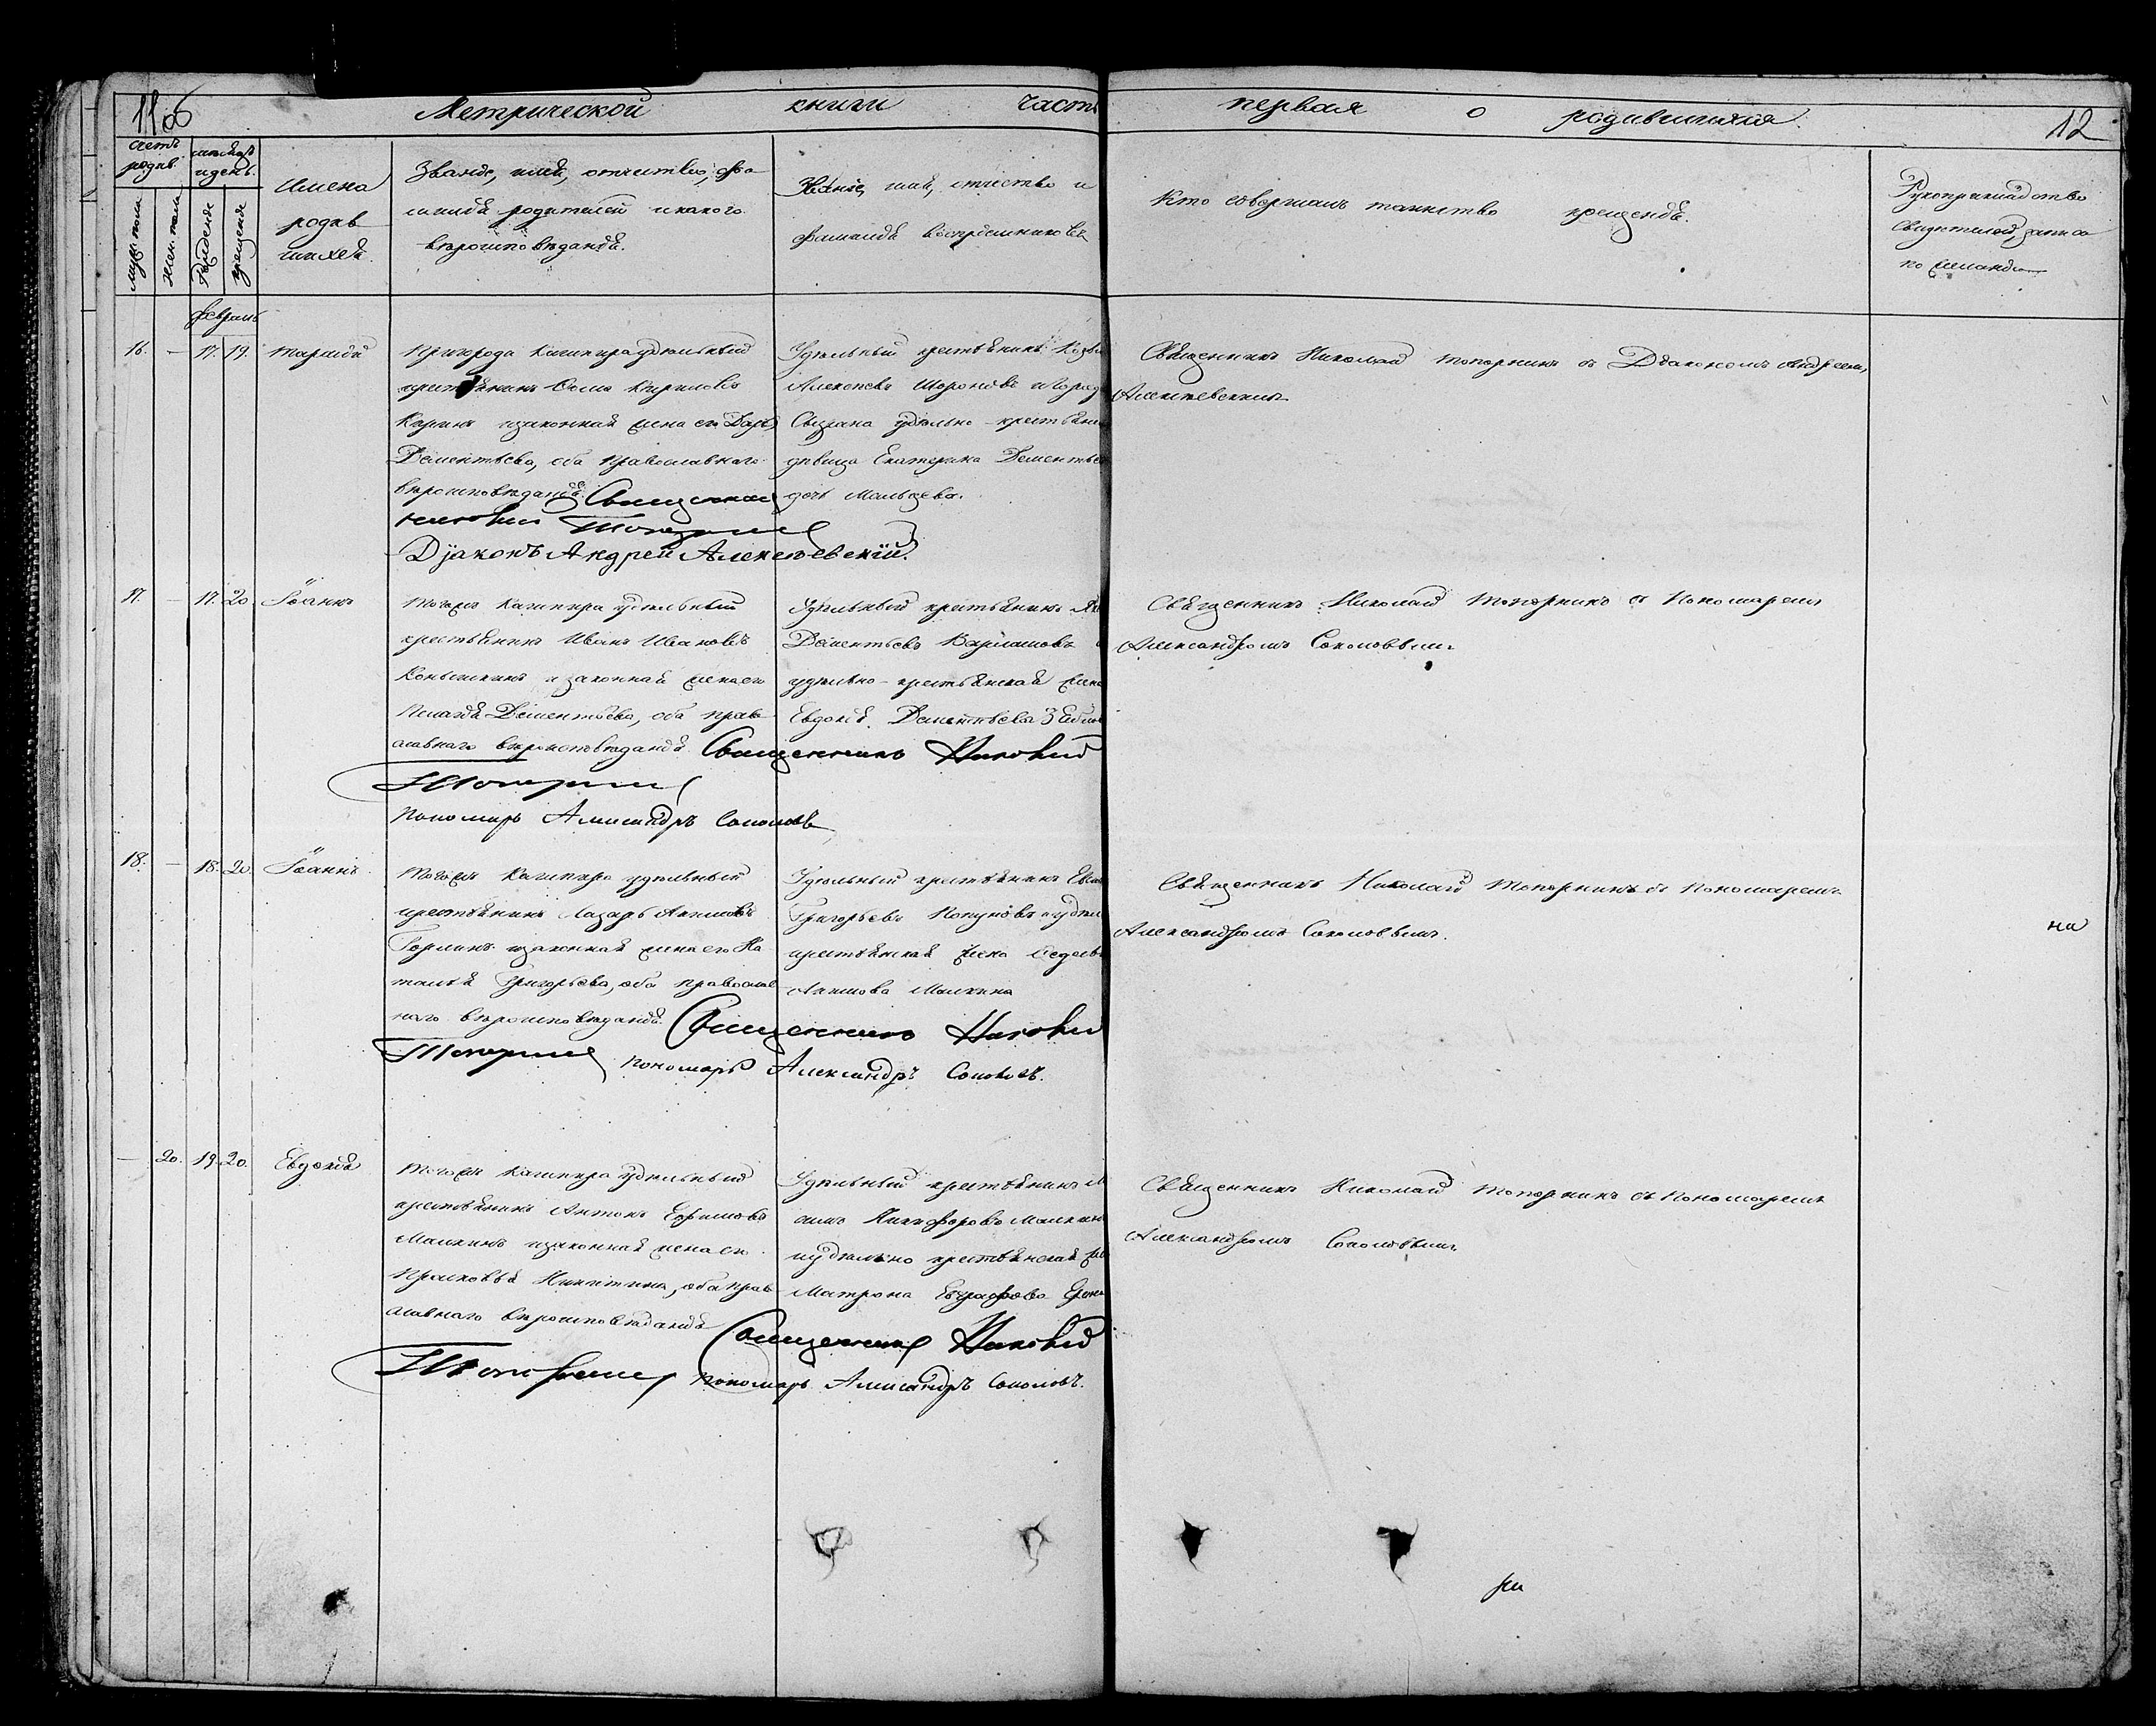 11об
Метрической книги часть первая о родившихся.
12
счетъ родив.
мѣсяцъ и день.
муж. пола
жен. пола
рожденія
крещенія
Имена
родив
шихся.
Званіе, имя, отчество, фа
милія родителей и какого
вѣроисповѣданія.
Званіе, имя, отчество и
фамилія воспріемниковъ
Кто совершалъ таинство крещенія.
Рукоприкладство
свидѣтелей записи
по желанію
февраль
16. – 17. 19.
Пригорода Кашпира удѣльный
крестьянинъ Кирилловъ
Каринъ и законная жена его Дарья
Дементьева, оба православнаго
вѣроисповѣданія. Священникъ
Николай Топорнинъ
Діаконъ Андрей Алексѣевскій.
Удѣльный крестьянинъ
Алексѣевъ и города
Сызрана удѣльно-крестьянск
дѣвица Екатерина Дементьева
дочь Мальцева.
Священникъ Николай Топорнинъ съ Діакономъ Андреемъ
Алексѣевскимъ.
17. – 17. 20. Іоаннъ
Тогожъ Кашпира удѣльный
крестьянинъ Иванъ Ивановъ
Конышкинъ и законная жена его
Пелагія Дементьева, оба право
славнаго вѣроисповѣданія. Священникъ Николай
Топорнинъ
Пономарь Александръ Соколовъ
Удѣльный крестьянинъ
Дементьевъ Варламовъ и
удѣльно-крестьянская жена
Евдокія Дементьева
Священникъ Николай Топорнинъ съ Пономаремъ
Александромъ Соколовымъ.
18. – 18. 20. Іоаннъ.
Тогожъ Кашпира удѣльный
крестьянинъ Лазарь Акимовъ
Горлинъ и законная жена его На
талья Григорьева, оба православ
наго вѣроисповѣданія. Священникъ Николай
Топорнинъ Пономарь Александръ Соколовъ.
Удѣльный крестьянинъ
Григорьевъ и удѣль
крестьянская жена Ѳедосья
Акимова Малкина
Священникъ Николай Топорнинъ съ Пономаремъ
Александромъ Соколовымъ.
на
– 20. 19. 20. Евдокія
Тогожъ Кашпира удѣльный
крестьянинъ Антонъ Ефимовъ
Малкинъ и законная жена его
Прасковья Никитина, оба прав
славнаго вѣроисповѣданія Священникъ Николай
Топорнинъ Пономарь Александръ Соколовъ.
Удѣльный крестьянинъ
Никифоровъ Малкинъ
и удѣльно крестьянская
Матрона Евграфова
Священникъ Николай Топорнинъ съ Пономаремъ
Александромъ Соколовымъ.